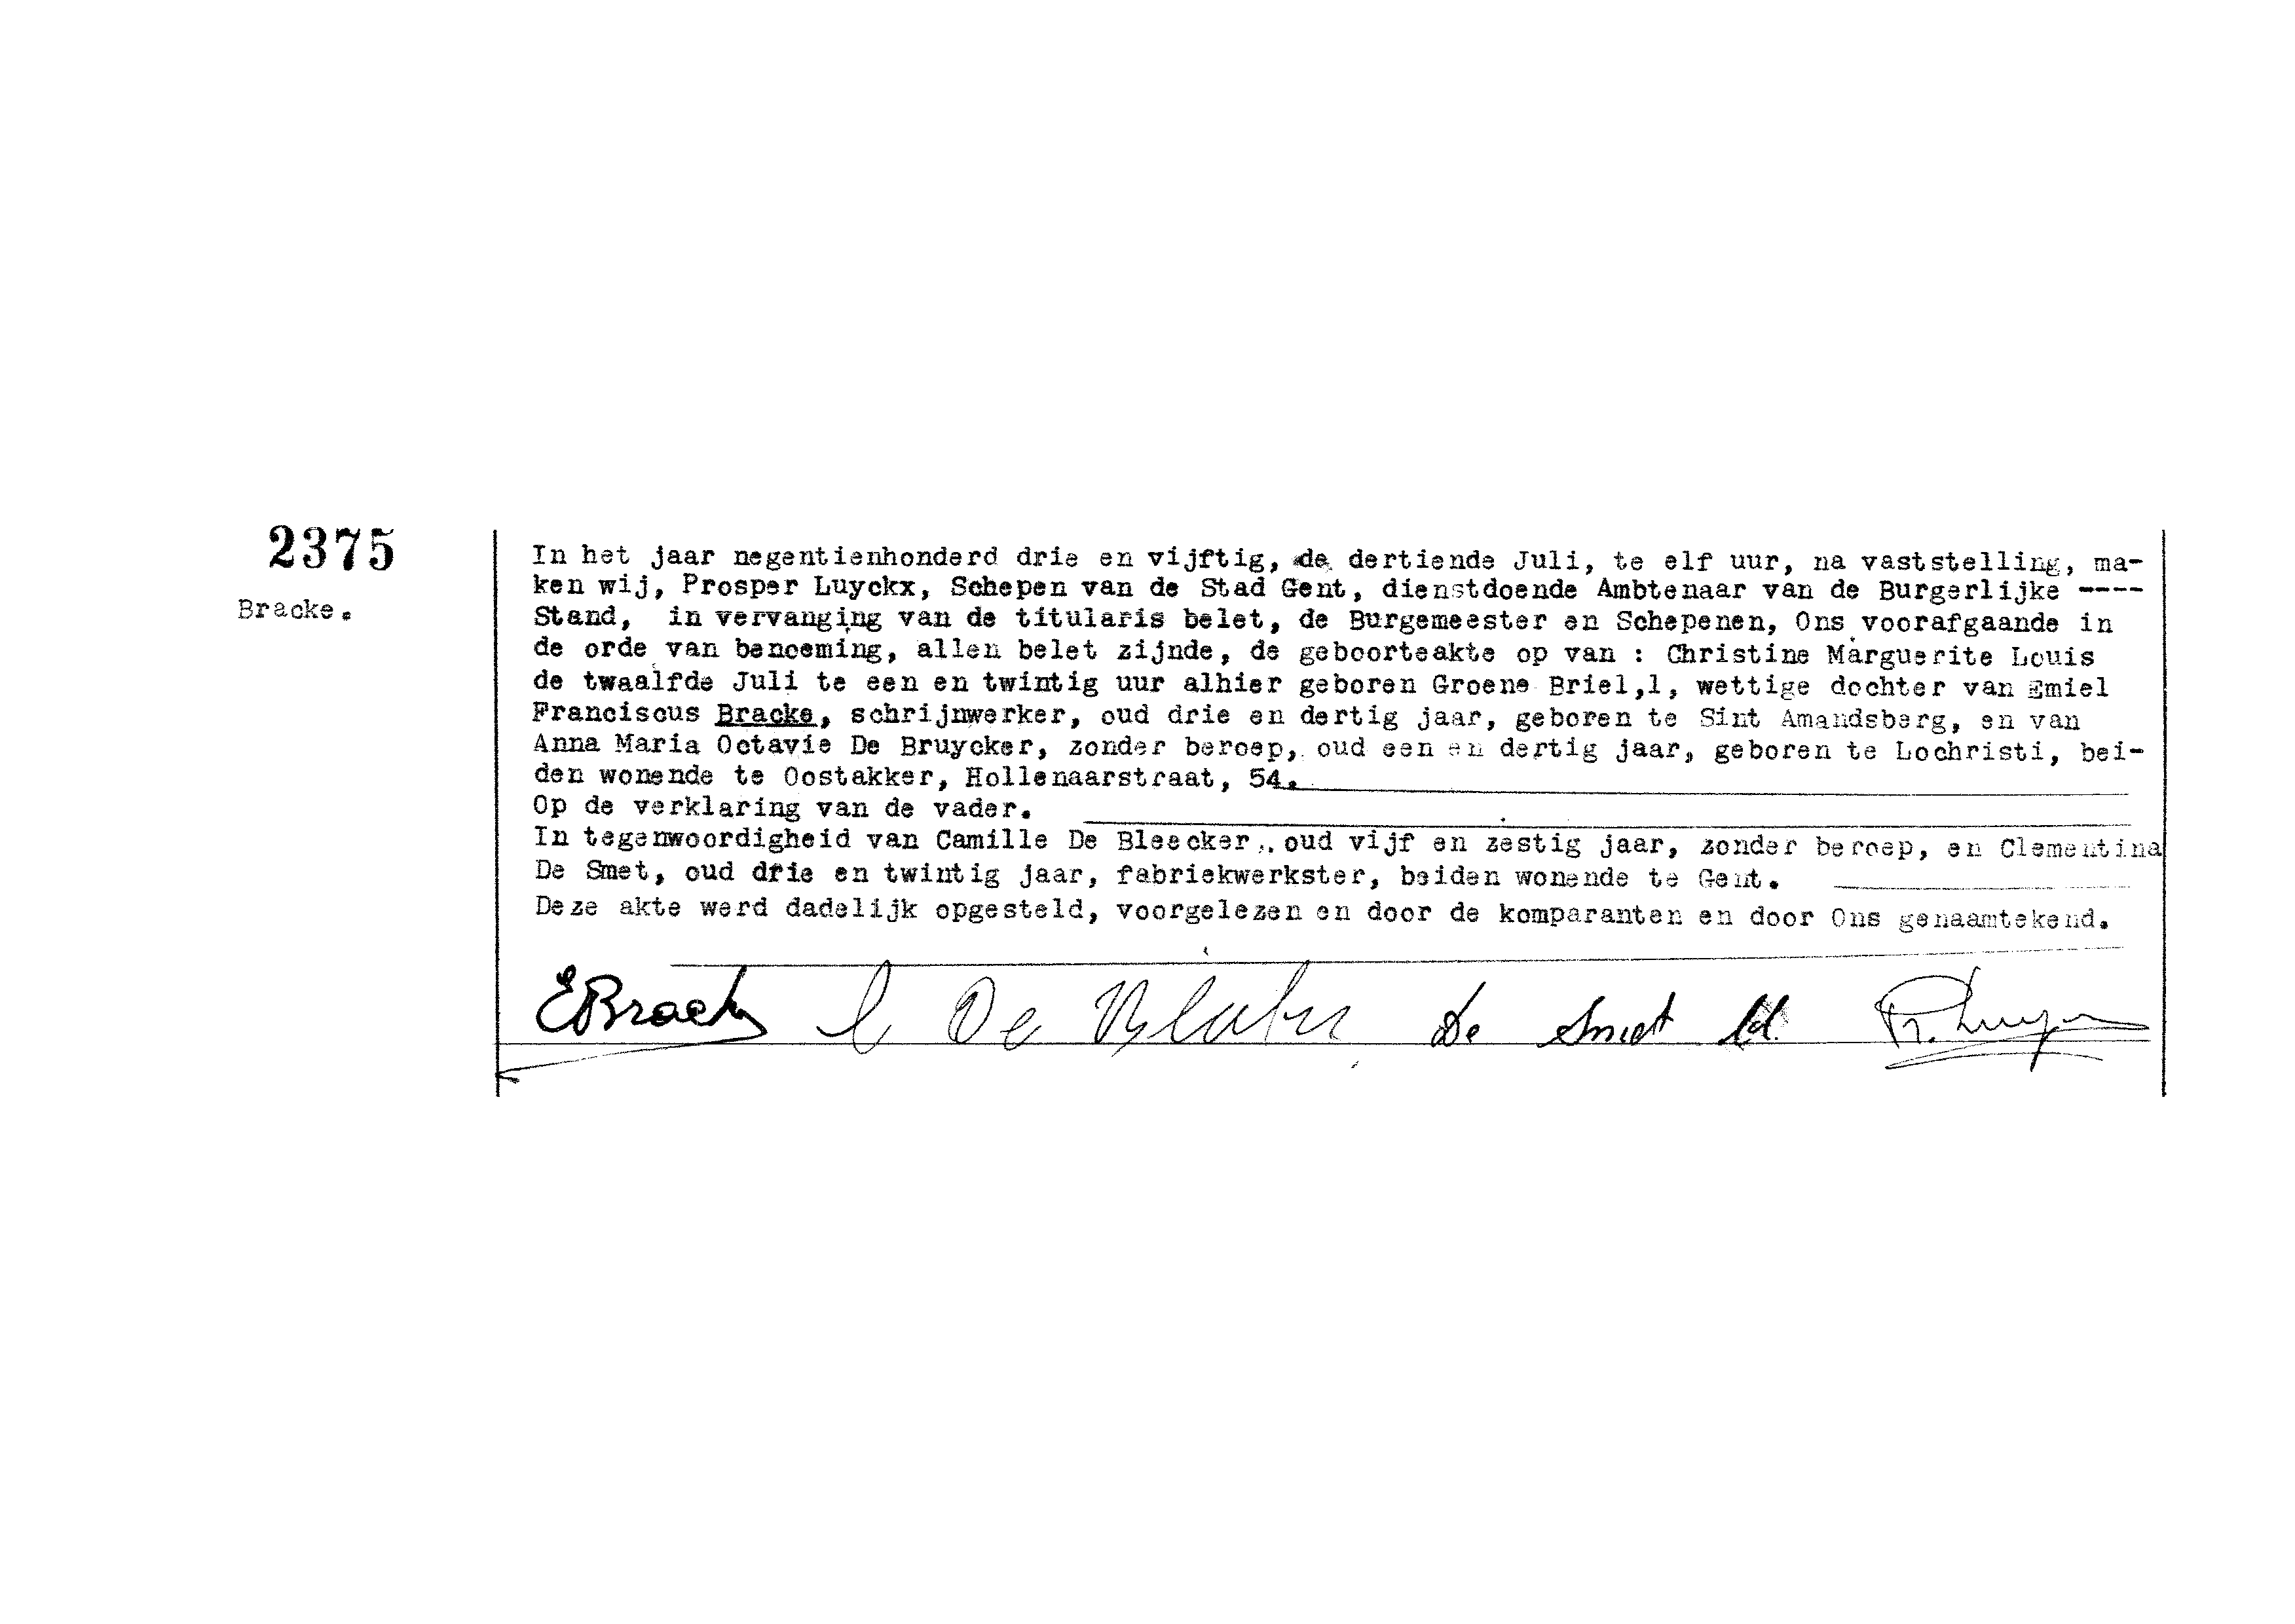 2375
Bracke.
In het jaar negentienhonderd drie en vijftig, de dertiende Juli, te elf uur, na vaststelling, ma-
ken wij, Prosper Luyckx, Schepen van de Stad Gent, dienstdoende Ambtenaar van de Burgerlijke ----
Stand, in vervanging van de titularis belet, de Burgemeester en Schepenen, Ons voorafgaande in
de orde van benoeming, allen belet zijnde, de geboorteakte op van : Christine Marguerite Louis
de twaalfde Juli te een en twintig uur alhier geboren Groene Briel,1, wettige dochter van Emiel
Franciscus Bracke, schrijnwerker, oud drie en dertig jaar, geboren te Sint Amandsberg, en van
Anna Maria Octavie De Bruycker, zonder beroep, oud een en dertig jaar, geboren te Lochristi, bei-
den wonende te Oostakker, Hollenaarstraat, 54.
Op de verklaring van de vader.
In tegenwoordigheid van Camille De Bleecker, oud vijf en zestig jaar, zonder beroep, en Clementina
De Smet, oud drie en twintig jaar, fabriekwerkster, beiden wonende te Gent.
Deze akte werd dadelijk opgesteld, voorgelezen en door de komparanten en door Ons genaamtekend.
EBracke De De Smet